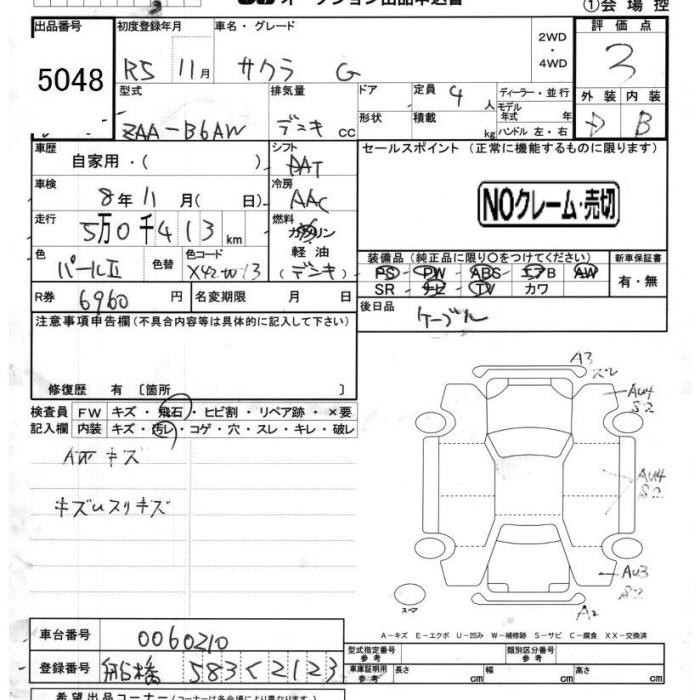 オークション出品申込書
①会場控
出品番号 初度登録年月 車名・グレード 評価点
5048 R5 11月 サクラ G 2WD・4WD 3
型式 排気量 ドア 定員 4人 ディーラー・並行 外装 内装
ZAA-B6AW デンキ CC 形状 積載 kg モデル年式 年 ハンドル 左・右 D B
車歴 シフト セールスポイント (正常に機能するものに限ります)
自家用・( ) DAT
車検 冷房
8年11月(日) AAC NOクレーム・売切
走行 燃料
5万0千413km ガソリン
軽油
色 色替 色コード (デンキ) 装備品 (純正品に限り○をつけてください) 新車保証書
パールⅡ PS PW ABS エアB AW 有・無
SR ナビ TV カワ
R券 6960円 名変期限 月 日 後日品
ケーブル
注意事項申告欄 (不具合内容等は具体的に記入して下さい)
修復歴 有〔箇所 〕
検査員 FW キズ・飛石・ヒビ割・リペア跡・×要
記入欄 内装 キズ・汚レ・コゲ・穴・スレ・キレ・破レ
AW キズ
A3
ズレ
AU4
S2
AU4
S2
AU3
S2
A2
スペア
A-キズ E-エクボ U-凹み W-補修跡 S-サビ C-腐食 XX-交換済
車台番号 0060210
型式指定番号 参考 類別区分番号 参考
登録番号 船橋 583 く 2123
車庫証明用 参考 長さ cm 幅 cm 高さ cm
希望出品コーナー